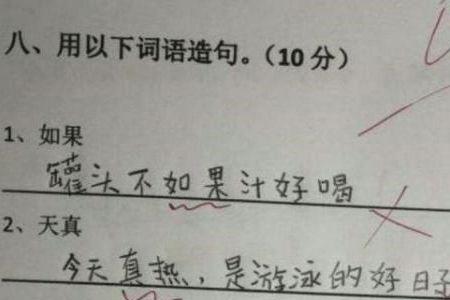 八、用以下词语造句。（10 分）
1、如果
罐头不如果汁好喝
2、天真
今天真热，是游泳的好日子